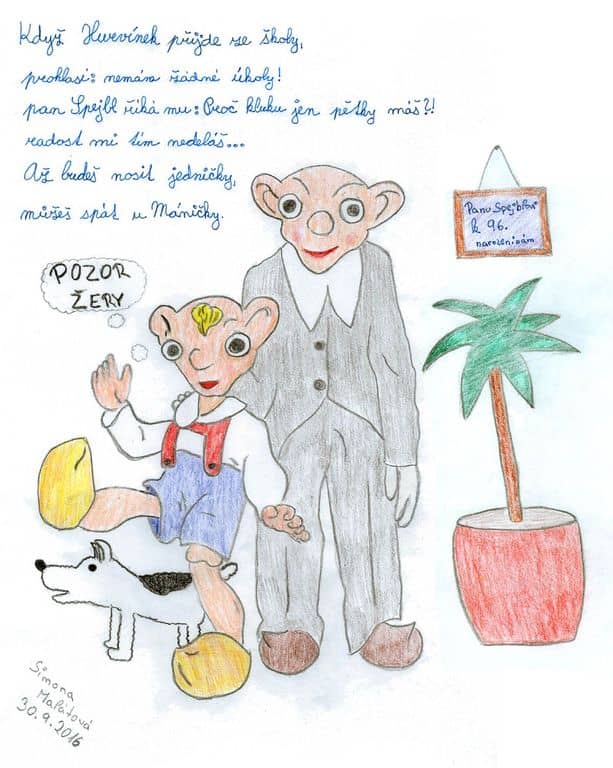 Když Hurvínek přijde ze školy,
prohlasí: nemám žádné úkoly!
pan Spejbl říká mu: Proč kluku jen pětky máš?!
radost mi tím neděláš...
Až budeš nosit jedničky,
můžeš spát u Máničky.
Panu Spejblovi
k 96.
narozeninám
POZOR
ŽERY
Simona
Malátová
30.9.2016